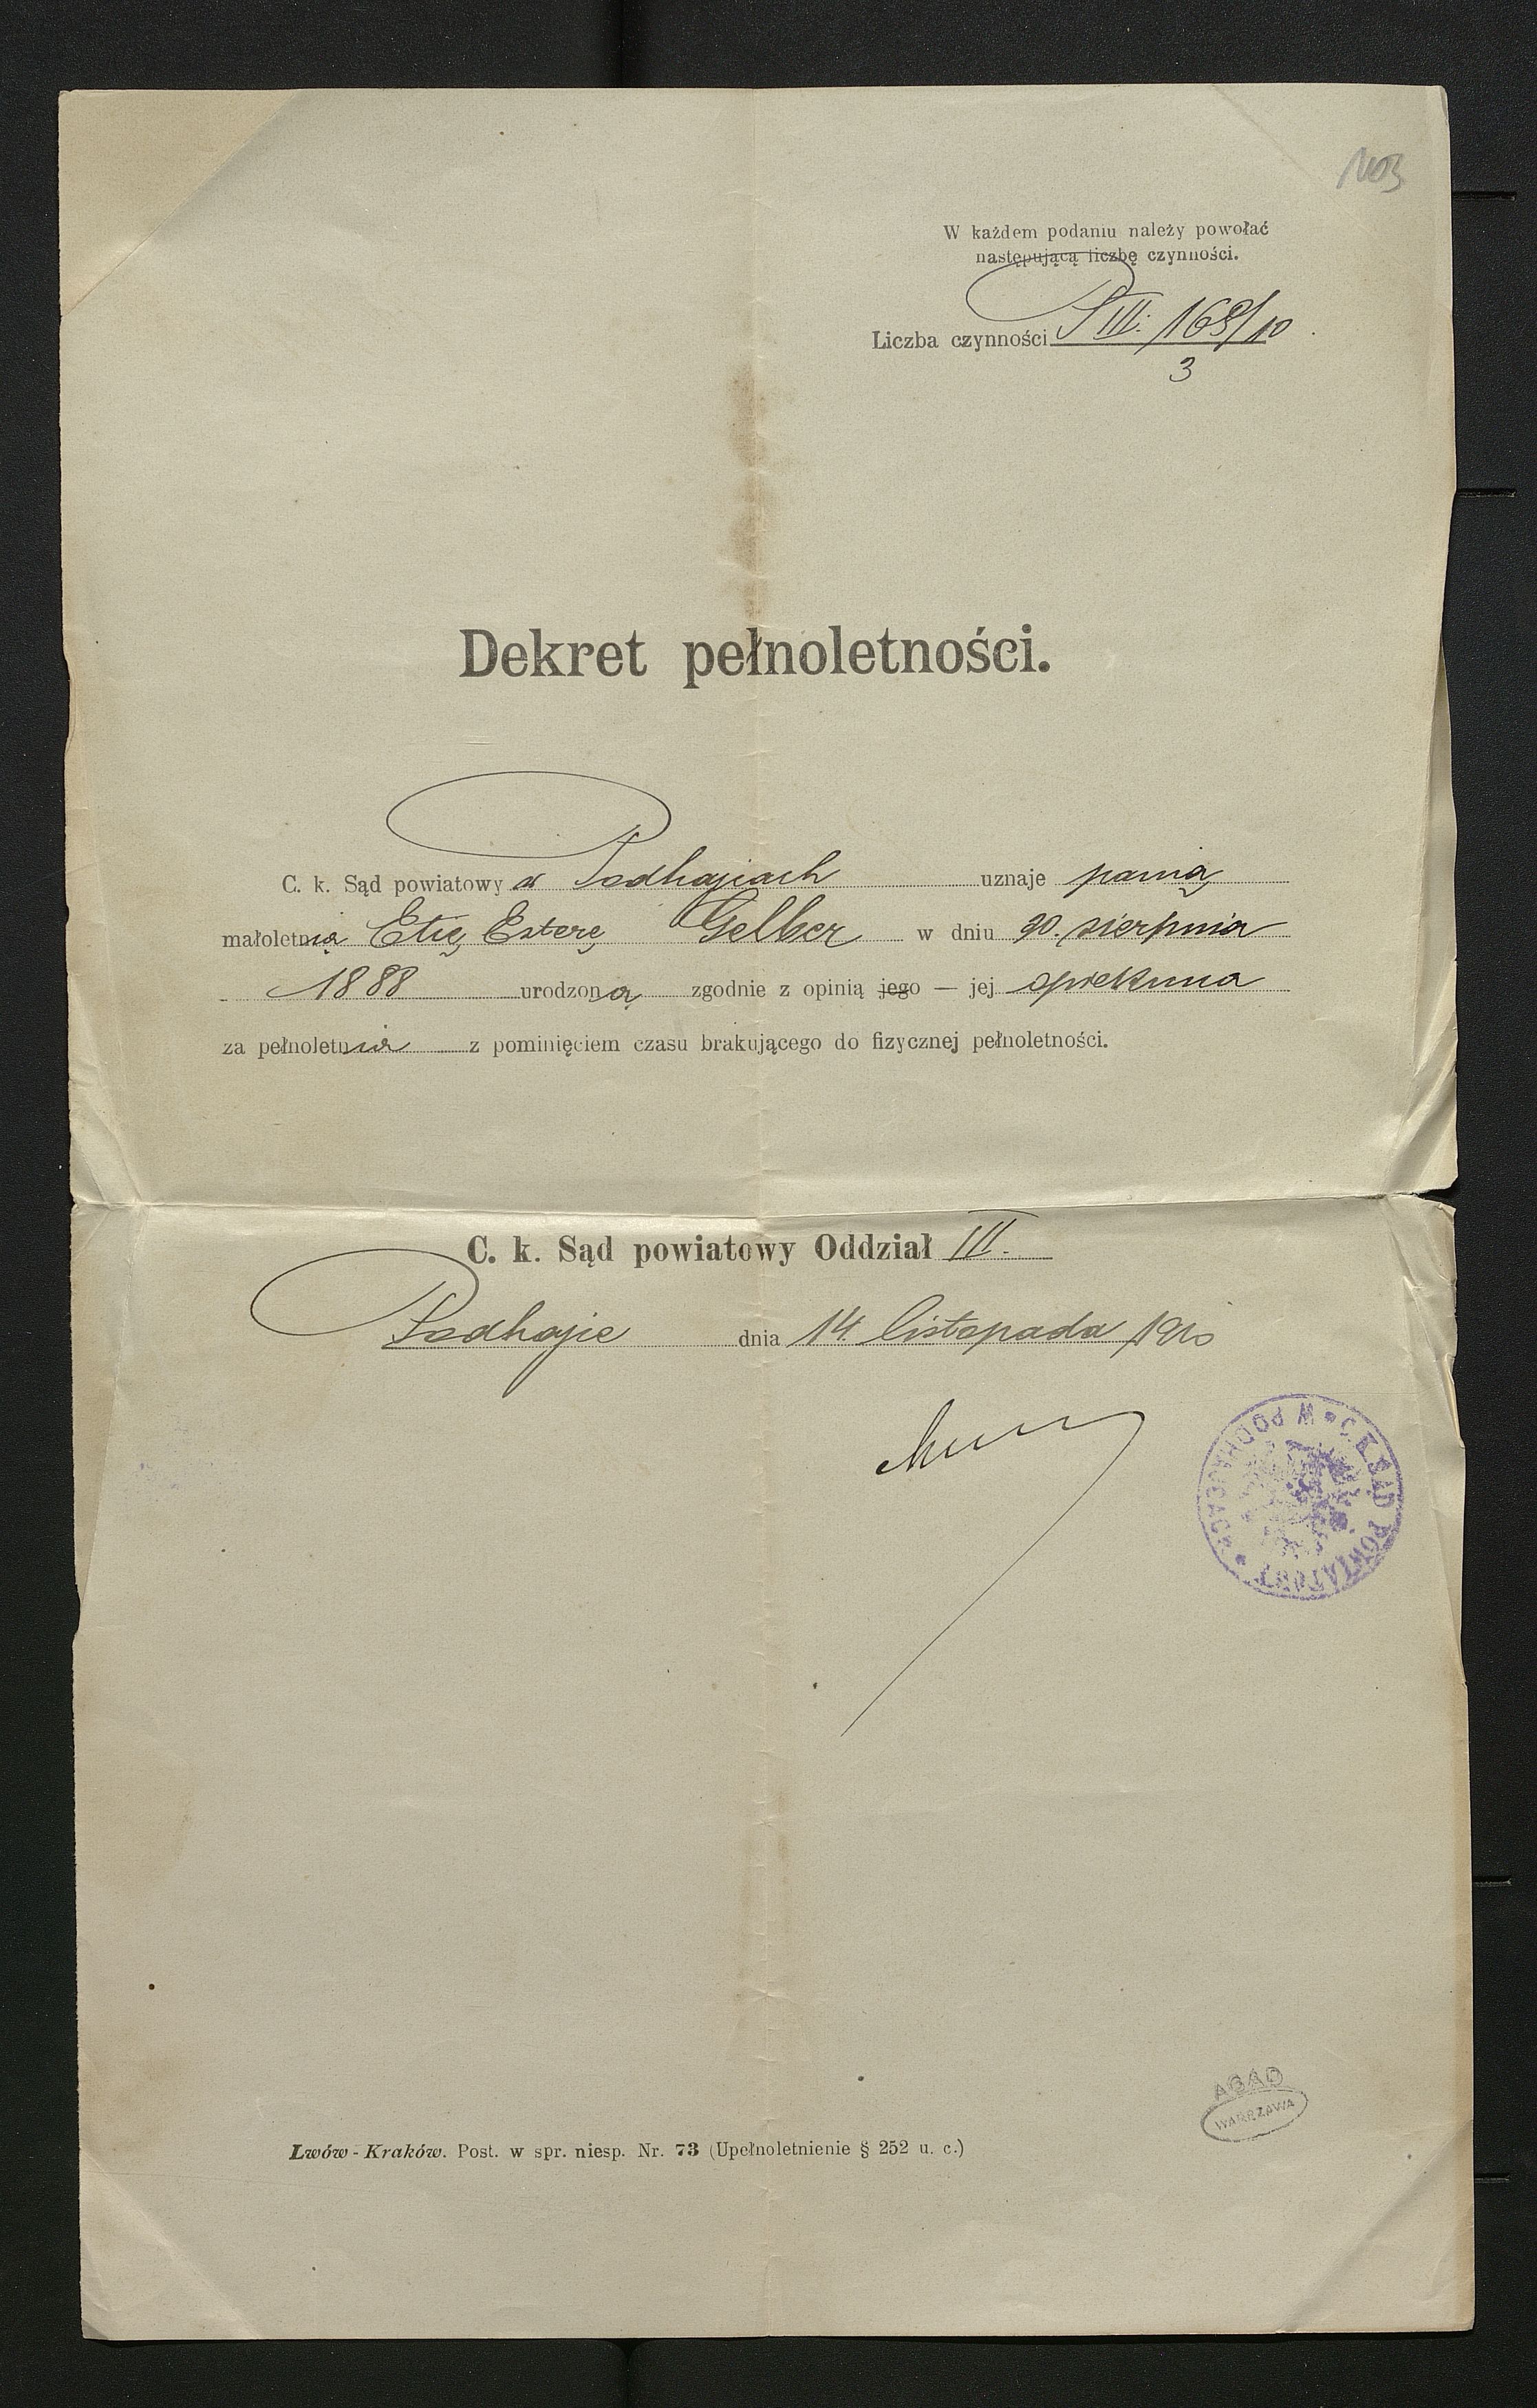 1103
W każdem podaniu należy powołać
następującą liczbę czynności.
Liczba czynności P III. 169/10
3
Dekret pełnoletności.
C. k. Sąd powiatowy w Podhajcach uznaje panią
małoletnią Etię Esterę Gelber w dniu 20. sierpnia
1888 urodzoną zgodnie z opinią jego — jej opiekuna
za pełnoletnia z pominięciem czasu brakującego do fizycznej pełnoletności.
C. k. Sąd powiatowy Oddział III.
Podhajce dnia 14 listopada 1910
C. K. SĄD POWIATOWY * W PODHAJCACH *
AGAD
WARSZAWA
Lwów - Kraków. Post. w spr. niesp. Nr. 73 (Upełnoletnienie § 252 u. c.)